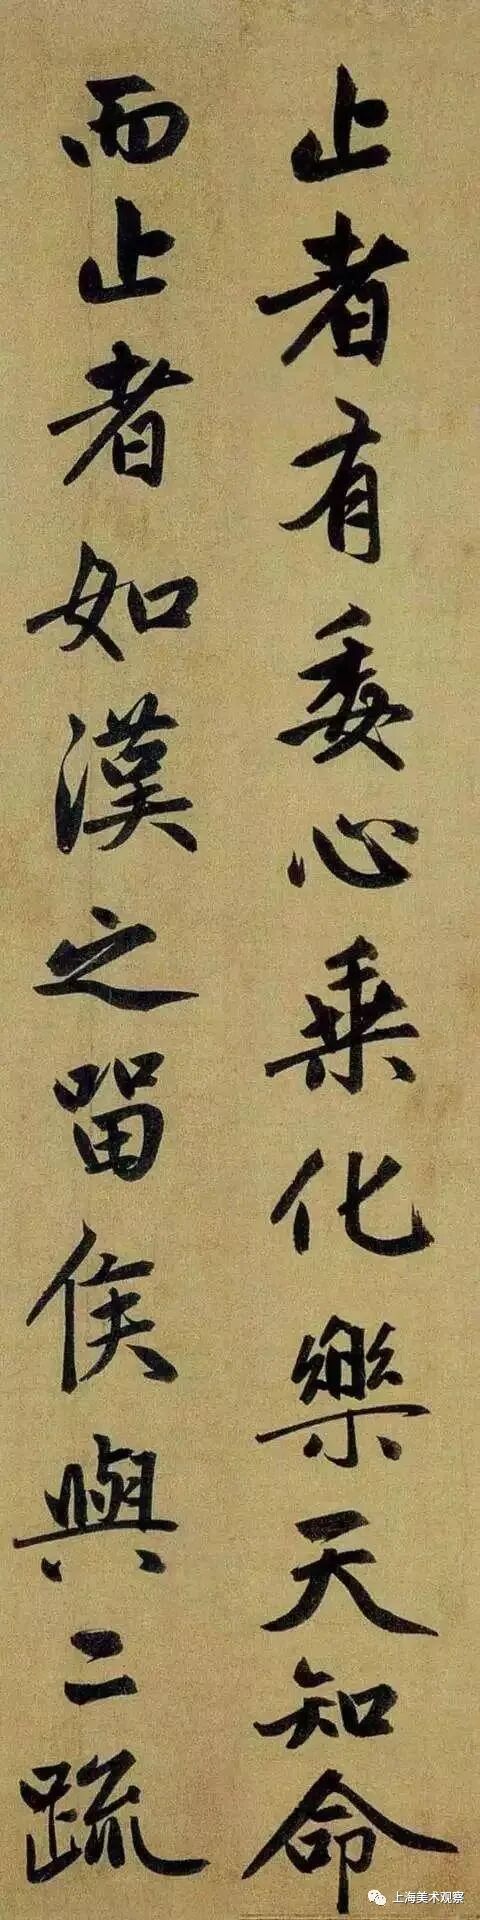 止者有委心乘化樂天知命
而止者如漢之留侯與二疏
上海美术观察